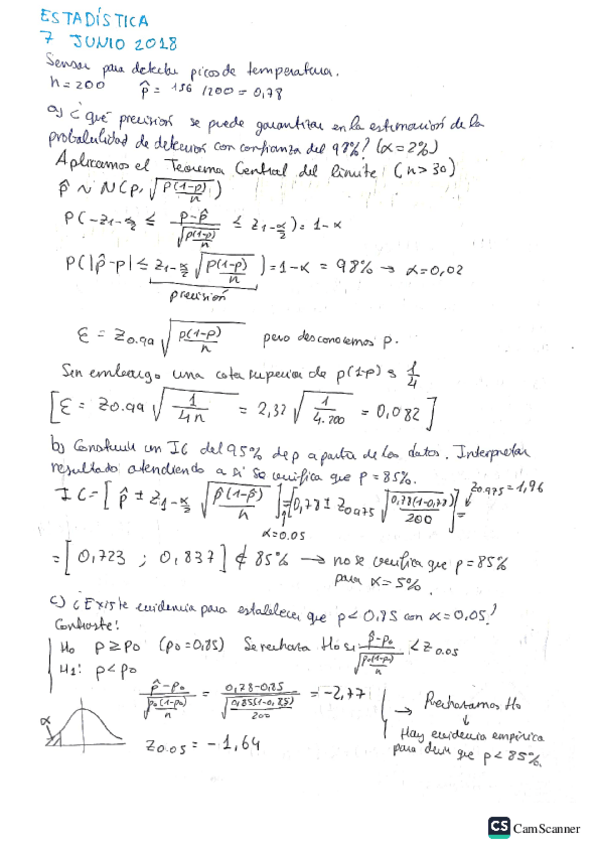 ESTADÍSTICA
7 JUNIO 2018
Sensor para detectar picos de temperatura.
n=200 p̂ = 156/200 = 0,78
a) ¿qué precisión se puede garantizar en la estimación de la
probabilidad de detección con confianza del 98%? (α=2%)
Aplicamos el Teorema Central del límite (n>30)
p̂ ~ N(p, √(p(1-p)/n))
P(-z1-α/2 ≤ (p-p̂)/√(p(1-p)/n) ≤ z1-α/2) = 1-α
P(|p̂-p| ≤ z1-α/2 √(p(1-p)/n)) = 1-α = 98% → α=0,02
precisión
ε = z0.99 √(p(1-p)/n) pero desconocemos p.
Sin embargo una cota superior de p(1-p) es 1/4
[ε = z0.99 √(1/4n) = 2,32 √(1/4·200) = 0,082]
b) Construir un IC del 95% de p a partir de los datos. Interpretar
resultado atendiendo a si se verifica que p = 85%.
IC = [p̂ ± z1-α/2 √(p̂(1-p̂)/n)] = [0,78 ± z0.975 √(0,78(1-0,78)/200)] = z0.975 = 1,96
α=0.05
= [0,723 ; 0,837] ∌ 85% → no se verifica que p=85%
para α=5%.
c) ¿Existe evidencia para establecer que p<0,85 con α=0,05?
Contraste:
H0 p ≥ p0 (p0=0,85) Se rechaza H0 si (p̂-p0)/√(p0(1-p0)/n) < z0.05
H1: p < p0
(p̂-p0)/√(p0(1-p0)/n) = (0,78-0,85)/√(0,85(1-0,85)/200) = -2,77 → Rechazamos H0
α
z0.05 = -1,64
Hay evidencia empírica
para decir que p < 85%.
CS CamScanner